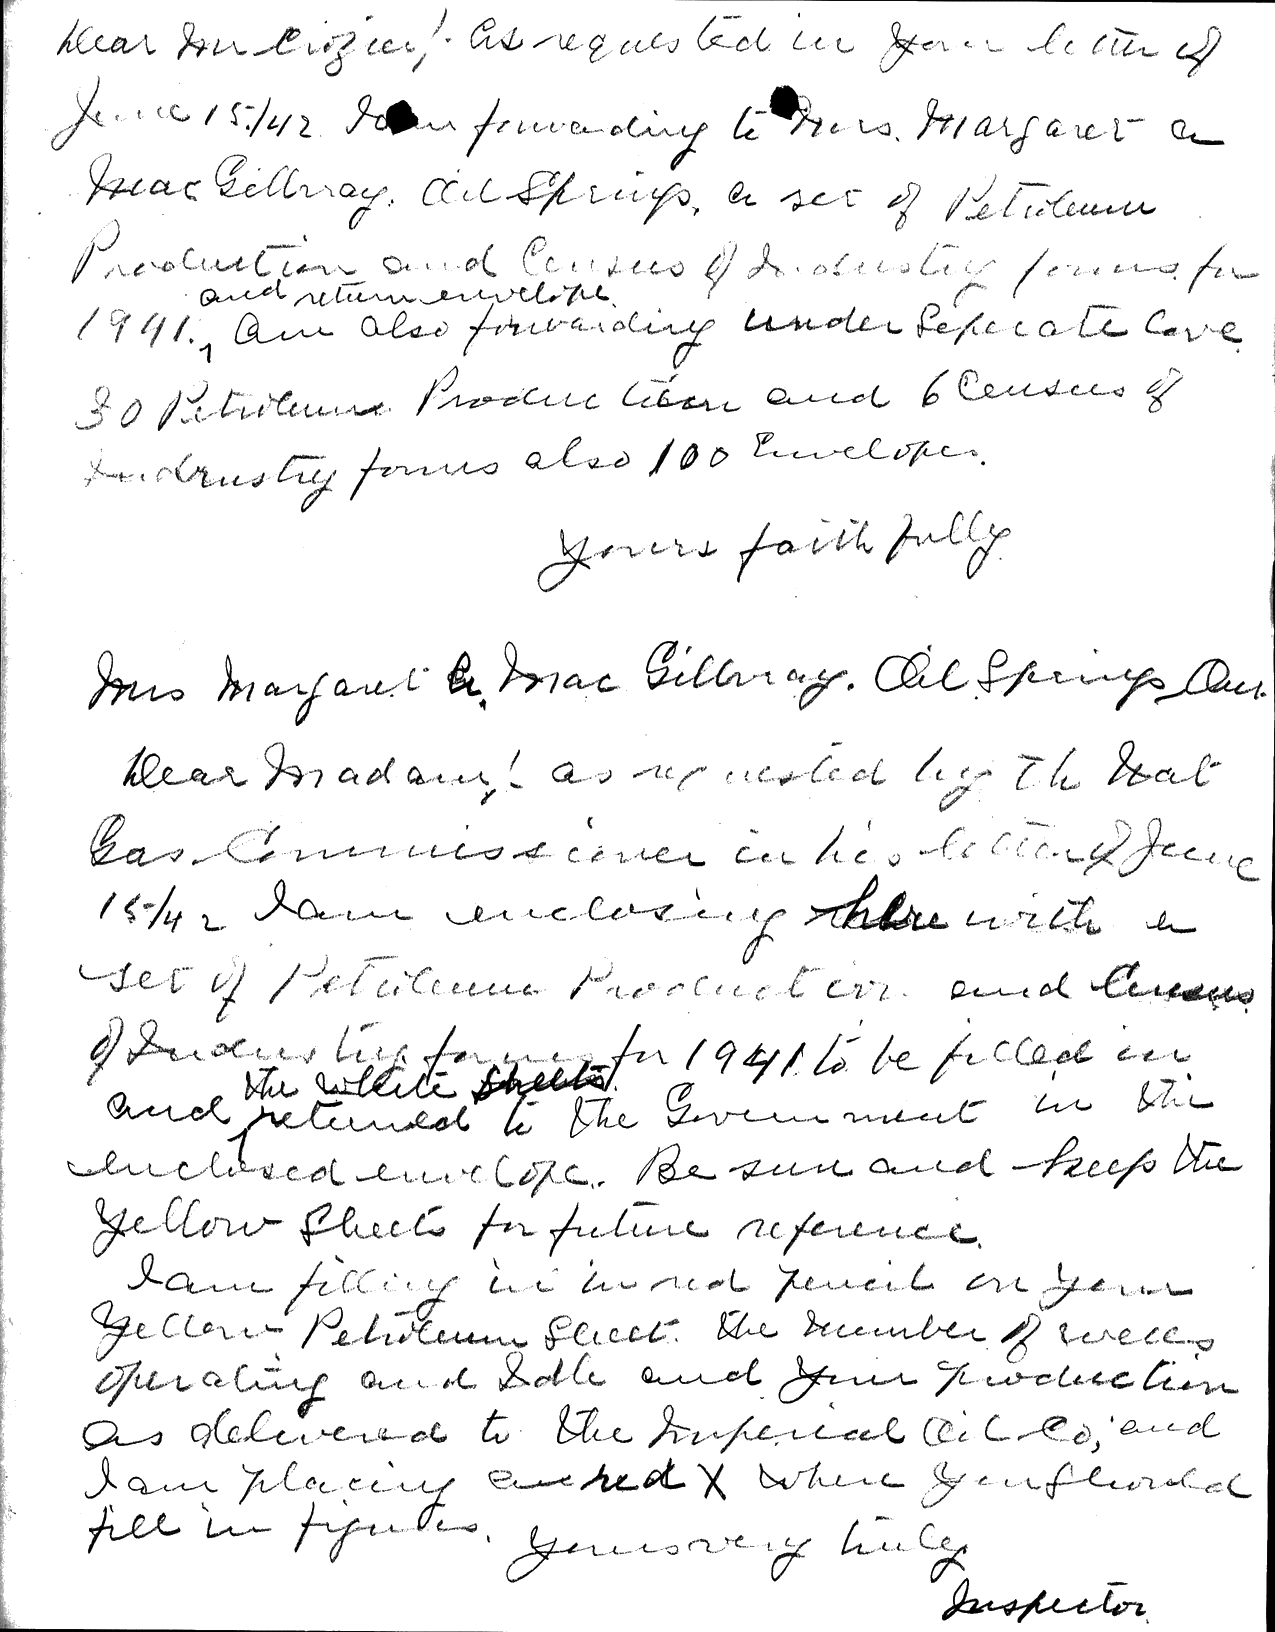 Dear Mr Crozier! As requested in your letter of
June 15/42 I am forwarding to Mrs. Margaret A
MacGillvray. Oil Springs, a set of Petroleum
Production and Census of Industry forms for
and return envelope.
1941., Am also forwarding under Seperate Cove
30 Petroleum Production and 6 Census of
Indrustry forms also 100 Envelopes.
Yours faithfully
Mrs Margaret A. Mac Gillvray. Oil Springs Ont.
Dear Madam! as requested by Th Nat
Gas Commissioner in his letter of June
15/42 I am enclosing here with a
set of Petroleum Production and Census
of Industry forms for 1941 to be filled in
the White Sheets
and returned to the Government in the
enclosed envelope. Be sure and keep the
Yellow Sheets for future reference.
I am filling in in red pencil on your
Yellow Petroleum Sheet. the number of wells
operating and Idle and your production
as delivered to the Imperial Oil Co, and
I am placing a red X where you Should
fill in figures.
Yours very truly
Inspector.